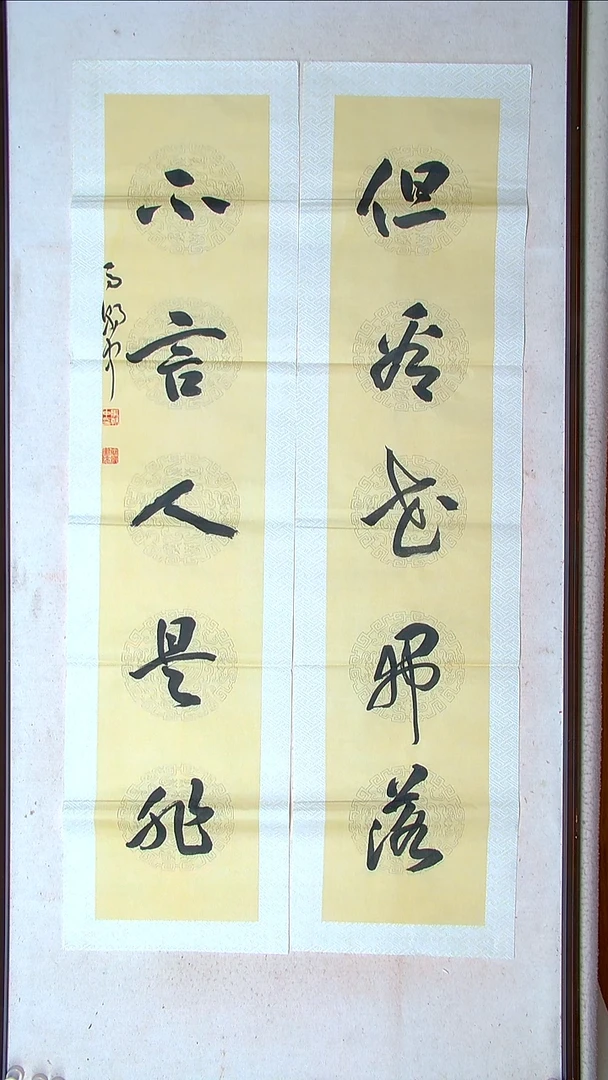 但看花开落
不言人是非